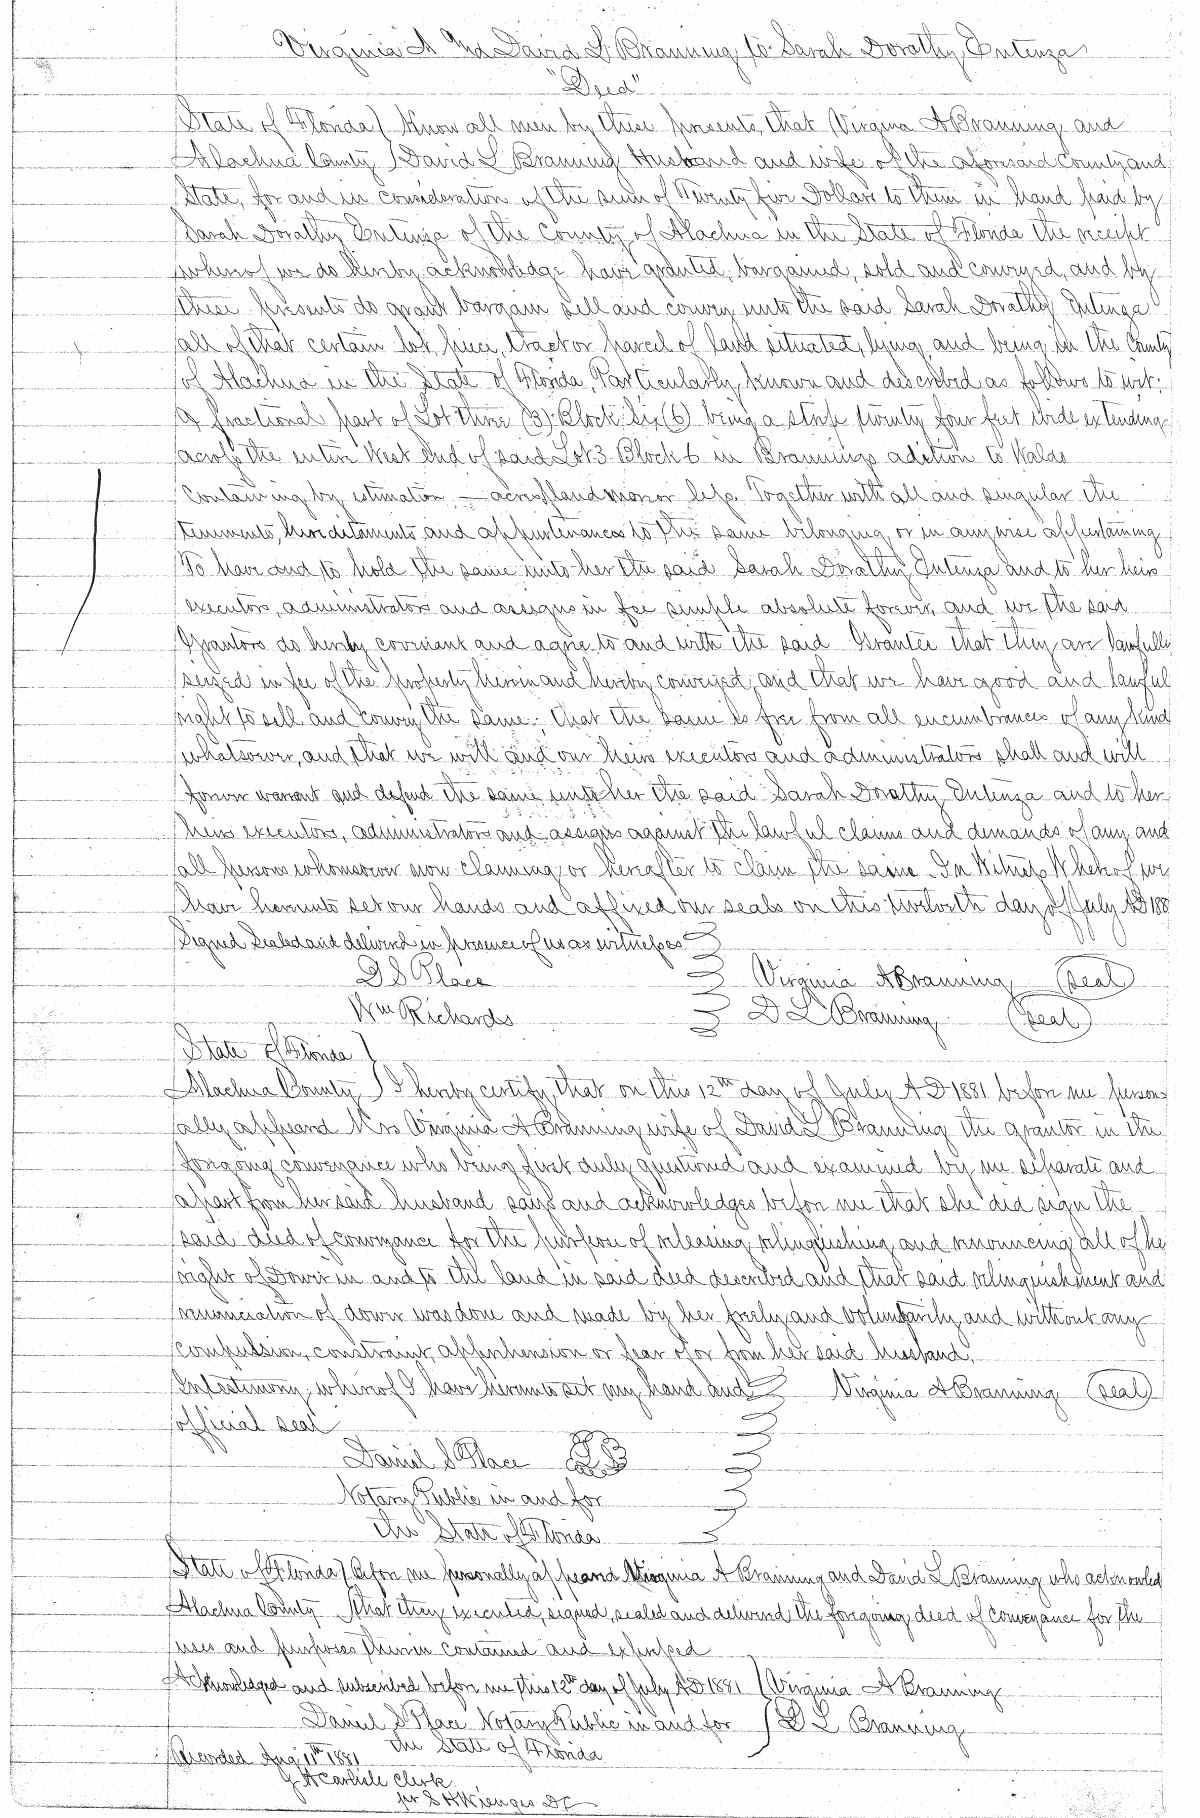 Virginia A and David L Branning to Sarah Dorathy Entenza
"Deed"
State of Florida ) Know all men by these presents, that Virgina A Branning and
Alachua County ) David L Branning Husband and wife of the aforesaid County and
State, for and in consideration of the sum of Twenty five Dollars to them in hand paid by
Sarah Dorathy Entenza of the County of Alachua in the State of Florida the receipt
whereof we do hereby acknowledge have granted, bargained, sold and conveyed, and by
these presents do grant bargain sell and convey unto the said Sarah Dorathy Entenza
all of that certain lot, piece, tract or parcel of land situated, lying and being in the County
of Alachua in the State of Florida, Particularly known and described as follows to wit:
A fractional part of Lot three (3) Block Six (6) being a strip twenty four feet wide extending
across the entire West End of said Lot 3 Block 6 in Brannings adition to Waldo
Containing by estimation — acres of land more or less. Together with all and singular the
tenements, hereditaments and appurtenances to the same belonging or in anywise appertaining
To have and to hold the same unto her the said Sarah Dorathy Entenza and to her heirs
executors, administrators and assigns in fee simple absolute forever, and we the said
Grantors do hereby covenant and agree to and with the said Grantee that they are lawfully
seized in fee of the property herein and hereby conveyed, and that we have good and lawful
right to sell and convey the same; that the same is free from all encumbrances of any kind
whatsoever, and that we will and our heirs executors and administrators shall and will
forever warrant and defend the same unto her the said Sarah Dorathy Entenza and to her
heirs executors, administrators and assigns against the lawful claims and demands of any and
all persons whomsoever now claiming or hereafter to claim the same. In Witness Whereof we
have hereunto set our hands and affixed our seals on this twelveth day of July AD 188
Signed Sealed and delivered in presence of us as witnesses
D S Place Virginia A Branning (seal)
Wm Richards D L Branning (seal)
State of Florida )
Alachua County ) I hereby certify, that on this 12th day of July AD 1881 before me person-
ally appeard Mrs Virginia A Branning wife of David L Branning the grantor in the
foregoing conveyance who being first duly questioned and examined by me separate and
apart from her said husband says and acknowledges before me that she did sign the
said deed of conveyance for the purpose of releasing, relinquishing and renouncing all of he
right of Dower in and to the land in said deed described and that said relinquishment and
renunciation of dower was done and made by her freely and voluntarily and without any
compulsion, constraint, apprehension or fear of or from her said husband.
In testimony whereof I have hereunto set my hand and Virginia A Branning (seal)
official seal
Daniel S Place
Notary Public in and for
the State of Florida
State of Florida ) Before me personally appeard Virginia A Branning and David L Branning who acknowled
Alachua County that they executed, signed, sealed and delivered the foregoing deed of conveyance for the
uses and purposes therein contained and expressed
Acknowledged and subscribed before me this 12th day of July AD 1881 ) Virginia A Branning
Daniel S Place Notary Public in and for ) D L Branning
the State of Florida
Recorded Aug 11th 1881
J A Carlisle Clerk
per S H Wienges DC